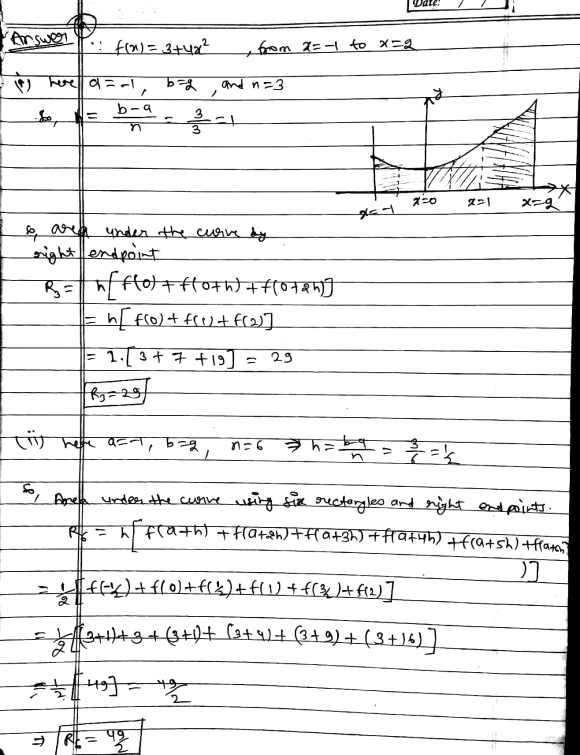 Date: / /
Answer ∵ f(x) = 3+4x² , from x=-1 to x=2
(i) here a=-1, b=2, and n=3
So, h = b-a/n = 3/3 = 1
y
X
x=-1 x=0 x=1 x=2
so, area under the curve by
right endpoint
R₃ = h[f(0) + f(0+h) + f(0+2h)]
= h[f(0) + f(1) + f(2)]
= 1.[3 + 7 + 19] = 29
R₃ = 29
(ii) here a=-1, b=2, n=6 ⇒ h = b-a/n = 3/6 = 1/2
So, Area under the curve using six rectangles and right end points.
R₆ = h[f(a+h) + f(a+2h) + f(a+3h) + f(a+4h) + f(a+5h) + f(a+6h
)]
= 1/2 [f(-1/2) + f(0) + f(1/2) + f(1) + f(3/2) + f(2)]
= 1/2 [(3+1) + 3 + (3+1) + (3+4) + (3+9) + (3+16)]
= 1/2 [49] = 49/2
⇒ R₆ = 49/2